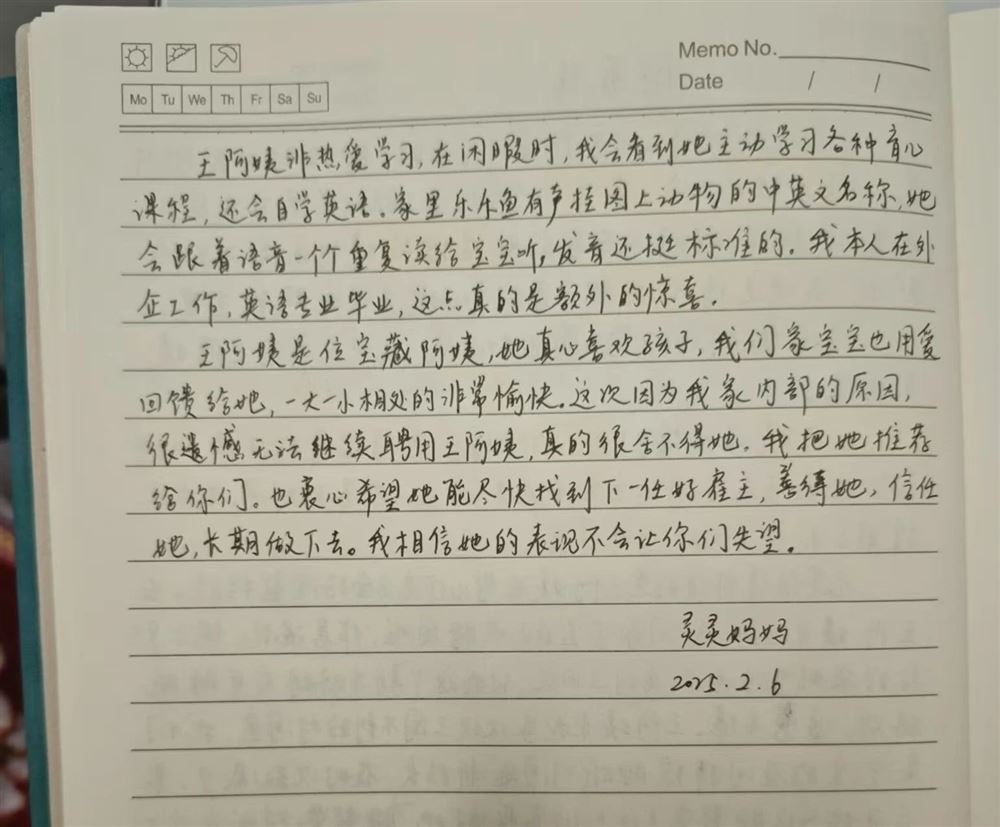 Memo No.
Date / /
Mo Tu We Th Fr Sa Su
王阿姨非热爱学习,在闲暇时,我会看到她主动学习各种育心
课程,还会自学英语。家里乐乐鱼有声挂图上动物的中英文名称,她
会跟着语音一个个重复读给宝宝听,发音还挺标准的。我本人在外
企工作,英语专业毕业,这点真的是额外的惊喜。
王阿姨是位宝藏阿姨,她真心喜欢孩子,我们家宝宝也用爱
回馈给她,一大一小相处的非常愉快。这次因为我家内部的原因,
很遗憾无法继续聘用王阿姨,真的很舍不得她。我把她推荐
给你们。也衷心希望她能尽快找到下一任好雇主,善待她,信任
她,长期做下去。我相信她的表现不会让你们失望。
灵灵妈妈
2025.2.6